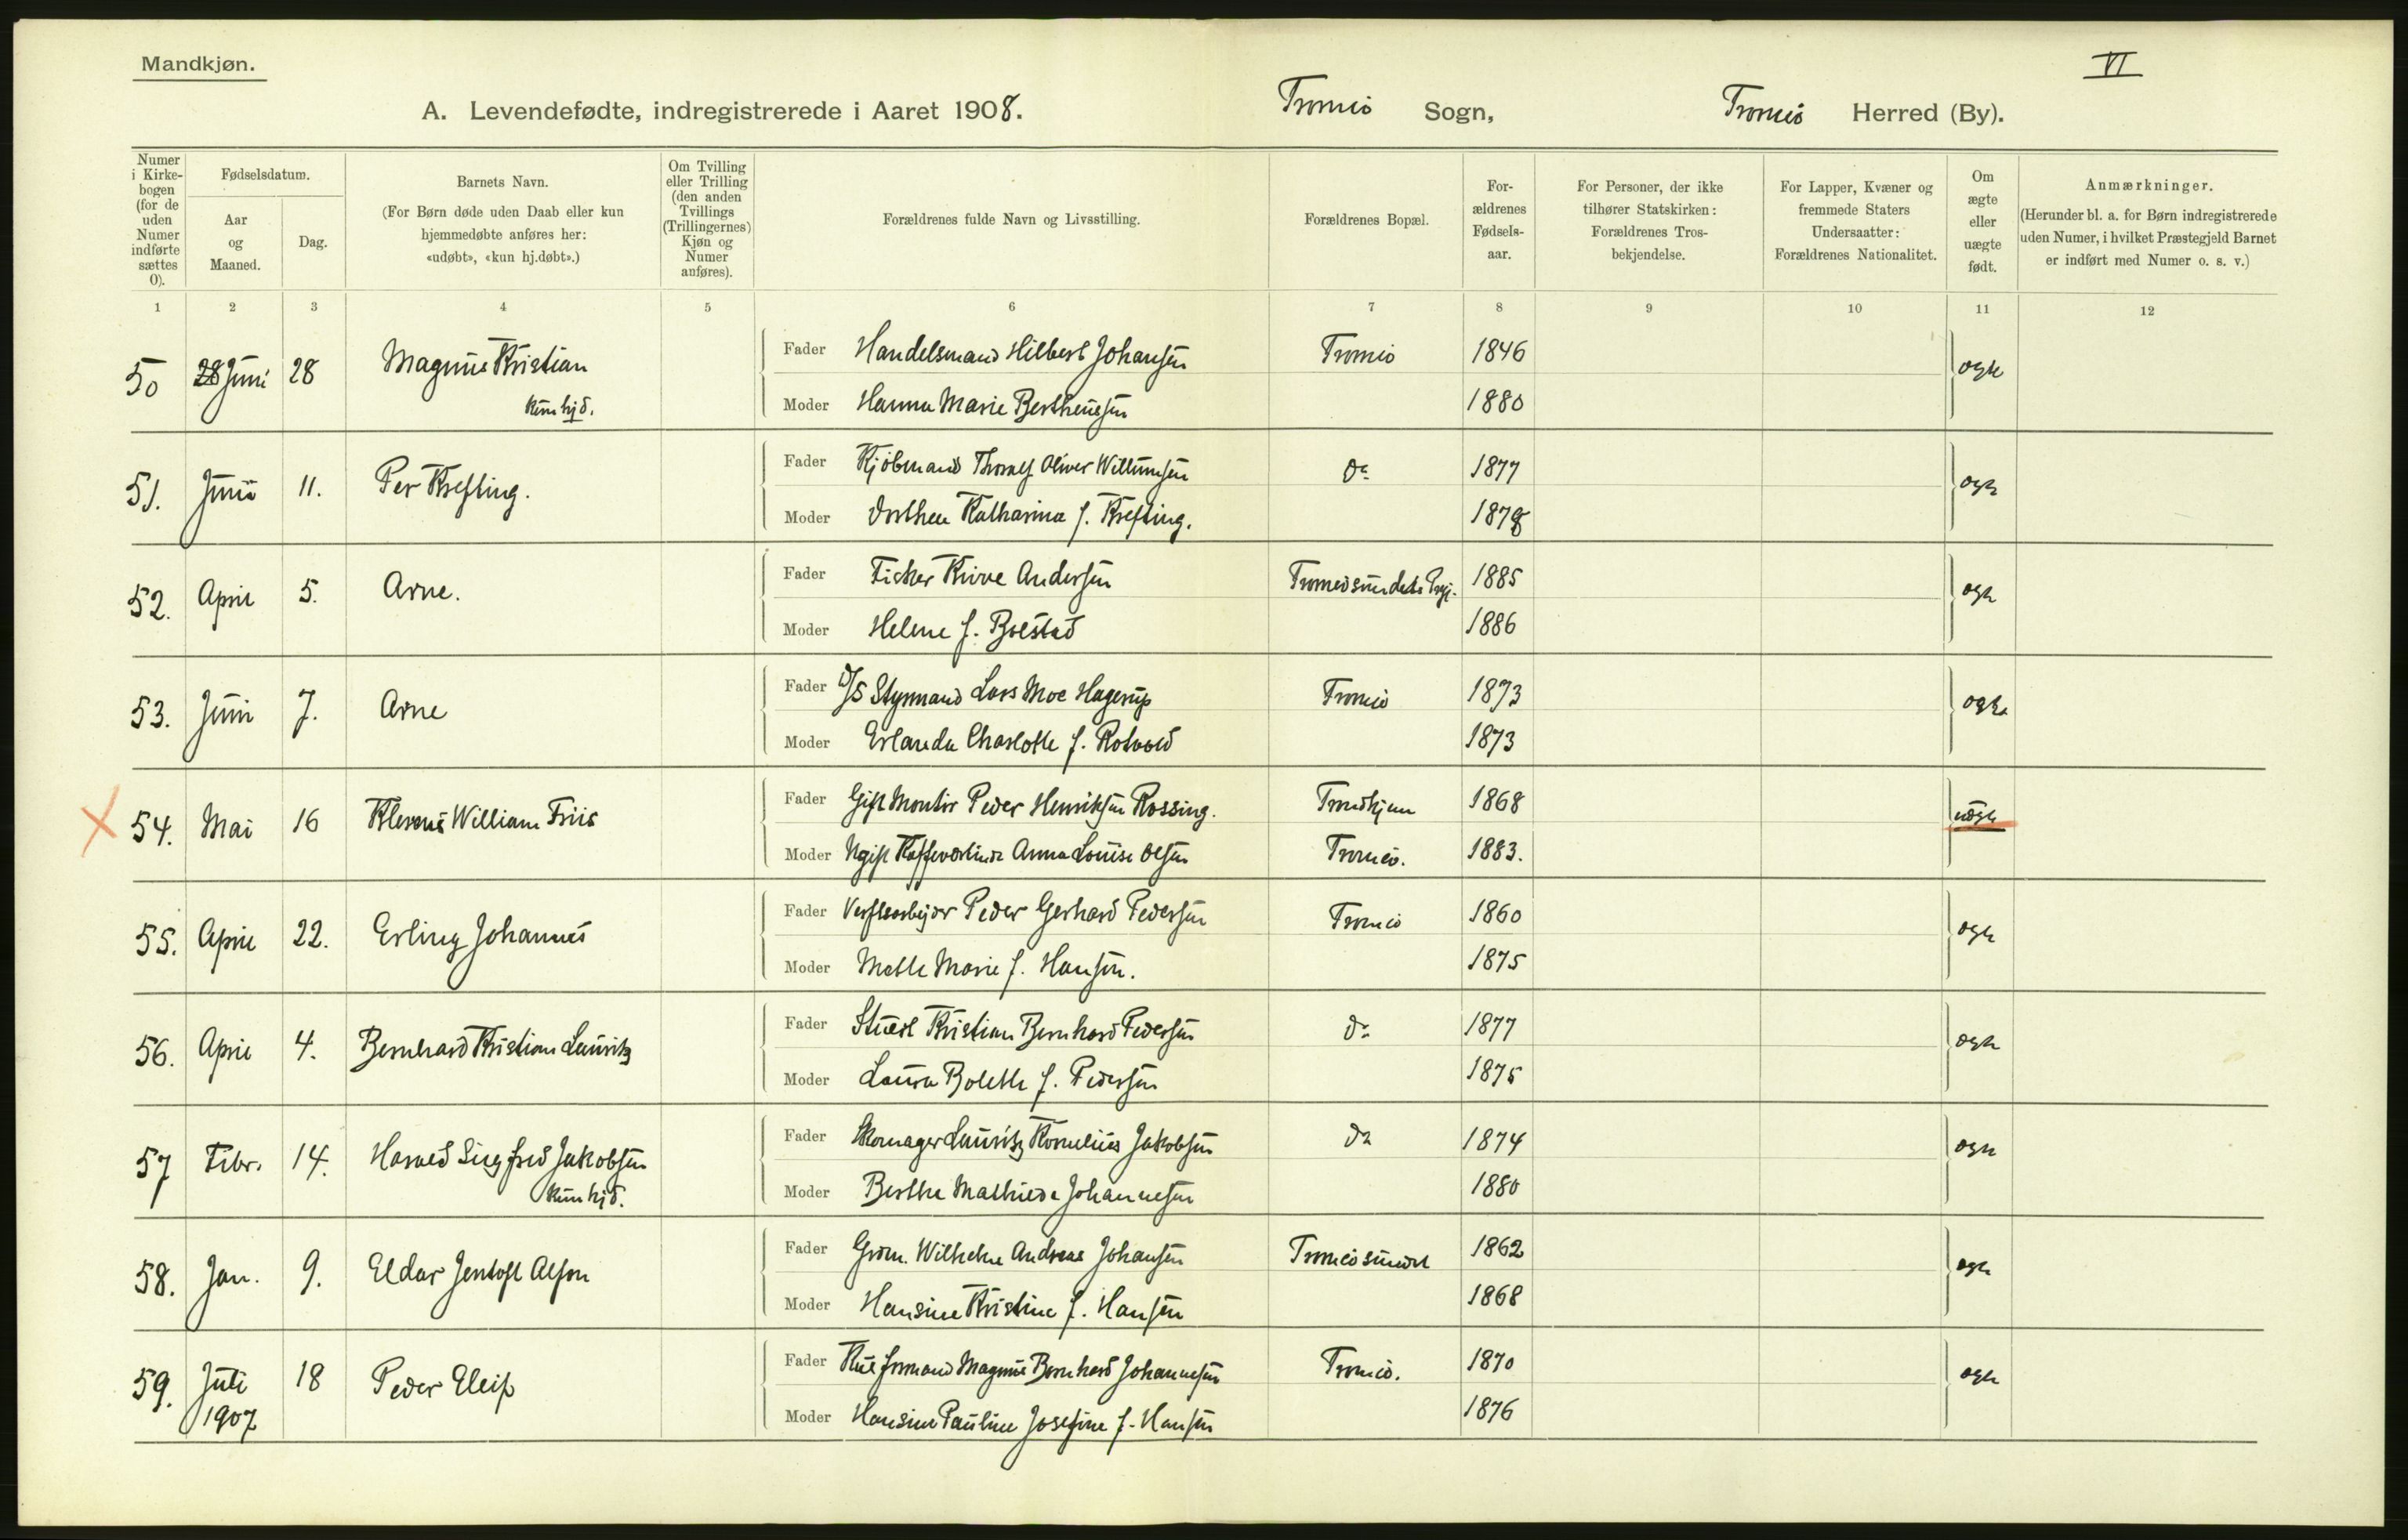 Mandkjøn.
VI
A. Levendefødte, indregistrerede i Aaret 1908. Tromsø Sogn, Tromsø Herred (By).
Numer i Kirke-bogen (for de uden Numer indførte sættes 0).
Fødselsdatum.
Aar og Maaned.
Dag.
Barnets Navn.
(For Børn døde uden Daab eller kun hjemmedøbte anføres her: «udøbt», «kun hj.døbt».)
Om Tvilling eller Trilling (den anden Tvillings (Trillingernes) Kjøn og Numer anføres).
Forældrenes fulde Navn og Livsstilling.
Forældrenes Bopæl.
For-ældrenes Fødsels-aar.
For Personer, der ikke tilhører Statskirken: Forældrenes Tros-bekjendelse.
For Lapper, Kvæner og fremmede Staters Undersaatter: Forældrenes Nationalitet.
Om ægte eller uægte født.
Anmærkninger.
(Herunder bl. a. for Børn indregistrerede uden Numer, i hvilket Præstegjeld Barnet er indført med Numer o. s. v.)
1 2 3 4 5 6 7 8 9 10 11 12
50 28 Juni 28 Magnus Kristian Fader Handelsmand Hilbert Johansen Tromsø 1846 ægte
kun hjd. Moder Hanna Marie Bertheussen 1880
51. Juni 11. Per Krefting. Fader Kjøbmand Thoralf Oliver Willumsen do 1877 ægte
Moder Dorthea Katharina f. Krefting. 1878
52. April 5. Arne. Fader Fisker Andersen Tromsøsundets Prgj. 1885 ægte
Moder Helene f. Bolstad 1886
53. Juni 7. Arne Fader D/S Styrmand Lars Moe Hagerup Tromsø 1873 ægte
Moder Erlanda Charlotte f. Rotvold 1873
54. Mai 16 William Friis Fader Gift Montør Peder Henriksen Rossing. Trondhjem 1868 uægte
Moder Ugift Kaffeværtinde Anna Louise Olsen Tromsø. 1883.
55. April 22. Erling Johannes Fader Verftsarbejder Peder Gerhard Pedersen Tromsø 1860 ægte
Moder Mette Marie f. Hansen. 1875
56. April 4. Bernhard Kristian Lauritz Fader Stuert Kristian Bernhard Pedersen do 1877 ægte
Moder Laura Bolette f. Pedersen 1875
57 Febr. 14. Harald Sigfred Jakobsen Fader Skomager Lauritz Kornelius Jakobsen do 1874 ægte
kun hjd. Moder Berthe Mathilde Johannesen 1880
58. Jan. 9. Eldar Jentoft Alfon Fader Grdm. Wilhelm Andreas Johansen Tromsøsundet 1862 ægte
Moder Hansine Kristine f. Hansen 1868
59. Juli 18 Peder Eleif Fader Magnus Bernhard Johannesen Tromsø. 1870 ægte
1907 Moder Hansine Pauline Josefine f. Hansen 1876